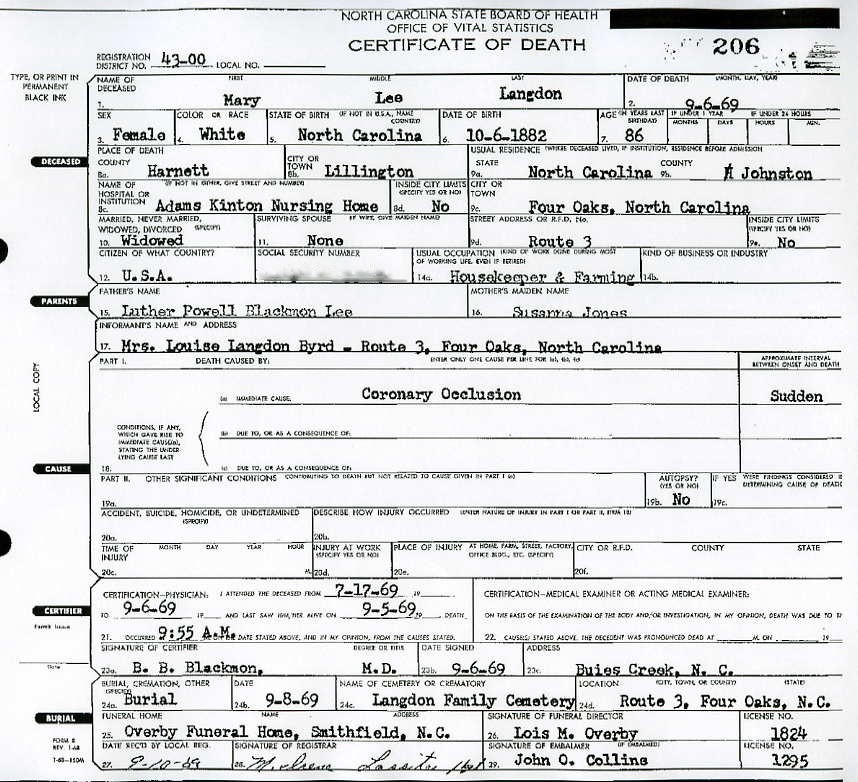 NORTH CAROLINA STATE BOARD OF HEALTH
OFFICE OF VITAL STATISTICS
CERTIFICATE OF DEATH
206
REGISTRATION DISTRICT NO. 43-00 LOCAL NO.
TYPE, OR PRINT IN PERMANENT BLACK INK
NAME OF DECEASED FIRST MIDDLE LAST DATE OF DEATH (MONTH, DAY, YEAR)
1. Mary Lee Langdon 2. 9-6-69
SEX COLOR OR RACE STATE OF BIRTH (IF NOT IN U.S.A., NAME COUNTRY) DATE OF BIRTH AGE (IN YEARS LAST BIRTHDAY) IF UNDER 1 YEAR MONTHS DAYS IF UNDER 24 HOURS HOURS MIN.
3. Female 4. White 5. North Carolina 6. 10-6-1882 7. 86
DECEASED
PLACE OF DEATH USUAL RESIDENCE (WHERE DECEASED LIVED, IF INSTITUTION, RESIDENCE BEFORE ADMISSION)
COUNTY CITY OR TOWN STATE COUNTY
8a. Harnett 8b. Lillington 9a. North Carolina 9b. Johnston
NAME OF HOSPITAL OR INSTITUTION (IF NOT IN EITHER, GIVE STREET AND NUMBER) INSIDE CITY LIMITS (SPECIFY YES OR NO) CITY OR TOWN
8c. Adams Kinton Nursing Home 8d. No 9c. Four Oaks, North Carolina
MARRIED, NEVER MARRIED, WIDOWED, DIVORCED (SPECIFY) SURVIVING SPOUSE (IF WIFE, GIVE MAIDEN NAME) STREET ADDRESS OR R.F.D. No. INSIDE CITY LIMITS (SPECIFY YES OR NO)
10. Widowed 11. None 9d. Route 3 9e. No
CITIZEN OF WHAT COUNTRY? SOCIAL SECURITY NUMBER USUAL OCCUPATION (KIND OF WORK DONE DURING MOST OF WORKING LIFE, EVEN IF RETIRED) KIND OF BUSINESS OR INDUSTRY
12. U.S.A. 14a. Housekeeper & Farming 14b.
PARENTS
FATHER'S NAME MOTHER'S MAIDEN NAME
15. Luther Powell Blackmon Lee 16. Susanna Jones
INFORMANT'S NAME AND ADDRESS
17. Mrs. Louise Langdon Byrd - Route 3, Four Oaks, North Carolina
LOCAL COPY
PART I. DEATH CAUSED BY: ENTER ONLY ONE CAUSE PER LINE FOR (a), (b), (c) APPROXIMATE INTERVAL BETWEEN ONSET AND DEATH
(a) IMMEDIATE CAUSE. Coronary Occlusion Sudden
CONDITIONS, IF ANY, WHICH GAVE RISE TO IMMEDIATE CAUSE(a), STATING THE UNDERLYING CAUSE LAST
(b) DUE TO, OR AS A CONSEQUENCE OF:
CAUSE
18. (c) DUE TO, OR AS A CONSEQUENCE OF:
PART II. OTHER SIGNIFICANT CONDITIONS CONTRIBUTING TO DEATH BUT NOT RELATED TO CAUSE GIVEN IN PART I (a) AUTOPSY? (YES OR NO) IF YES WERE FINDINGS CONSIDERED I DETERMINING CAUSE OF DEAT
19a. 19b. No 19c.
ACCIDENT, SUICIDE, HOMICIDE, OR UNDETERMINED (SPECIFY) DESCRIBE HOW INJURY OCCURRED (ENTER NATURE OF INJURY IN PART I OR PART II, ITEM 18)
20a. 20b.
TIME OF INJURY MONTH DAY YEAR HOUR INJURY AT WORK (SPECIFY YES OR NO) PLACE OF INJURY AT HOME, FARM, STREET, FACTORY, OFFICE BLDG., ETC. (SPECIFY) CITY OR R.F.D. COUNTY STATE
20c. M. 20d. 20e. 20f.
CERTIFIER
CERTIFICATION-PHYSICIAN: I ATTENDED THE DECEASED FROM 7-17-69 19 CERTIFICATION-MEDICAL EXAMINER OR ACTING MEDICAL EXAMINER:
TO 9-6-69 19 AND LAST SAW HIM/HER ALIVE ON 9-5-69 19 DEATH ON THE BASIS OF THE EXAMINATION OF THE BODY AND/OR INVESTIGATION, IN MY OPINION, DEATH WAS DUE TO T
21. OCCURRED 9:55 A.M. DATE STATED ABOVE, AND IN MY OPINION, FROM THE CAUSES STATED. 22. CAUSE(S) STATED ABOVE. THE DECEDENT WAS PRONOUNCED DEAD AT M. ON 19
SIGNATURE OF CERTIFIER DEGREE OR TITLE DATE SIGNED ADDRESS
23a. B. B. Blackmon, M.D. 23b. 9-6-69 23c. Buies Creek, N. C.
Date
BURIAL, CREMATION, OTHER (SPECIFY) DATE NAME OF CEMETERY OR CREMATORY LOCATION (CITY, TOWN, OR COUNTY) (STATE)
24a. Burial 24b. 9-8-69 24c. Langdon Family Cemetery 24d. Route 3, Four Oaks, N.C.
BURIAL
FUNERAL HOME NAME ADDRESS SIGNATURE OF FUNERAL DIRECTOR LICENSE NO.
25. Overby Funeral Home, Smithfield, N.C. 26. Lois M. Overby 1824
FORM 8
REV. 1-68
DATE REC'D BY LOCAL REG. SIGNATURE OF REGISTRAR SIGNATURE OF EMBALMER (IF EMBALMED) LICENSE NO.
27. 9-10-69 28. 29. John O. Collins 1295